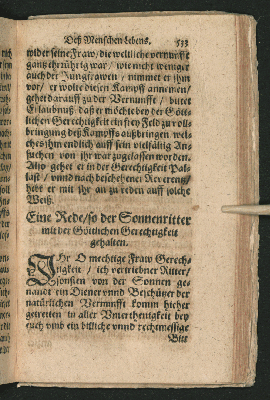 Deß Menschen Lebens. 533
wider seine Fraw, die weltliche vernunfft
gantz ehrrührig war / wie nicht weniger
auch der Jungfrawen / nimmet er ihm
vor / er wolte diesen Kampff annemen /
gehet darauff zu der Vernunfft / bittet
Erlaubnuß, daß er möchte bey der Göt-
lichen Gerechtigkeit ein frey Feld zu voll-
bringung deß Kampffs außbringen, wel-
ches ihm endlich auff sein vielfältig An-
suchen von ihr war zugelassen worden.
Also gehet er in der Gerechtigkeit Pal-
last / vnnd nach beschehener Reverentz,
hebt er mit ihr an zu reden auff solche
Weiß.
Eine Rede / so der Sonnenritter
mit der Göttlichen Gerechtigkeit
gehalten.
IHr O mechtige Fraw Gerech-
tigkeit / ich vertriebner Ritter /
sonsten von der Sonnen ge-
nandt ein Diener vnnd Beschützer der
natürlichen Vernunfft komm hieher
getretten in aller Vnterthenigkeit bey
euch vmb ein billiche vnnd rechtmessige
Bitt